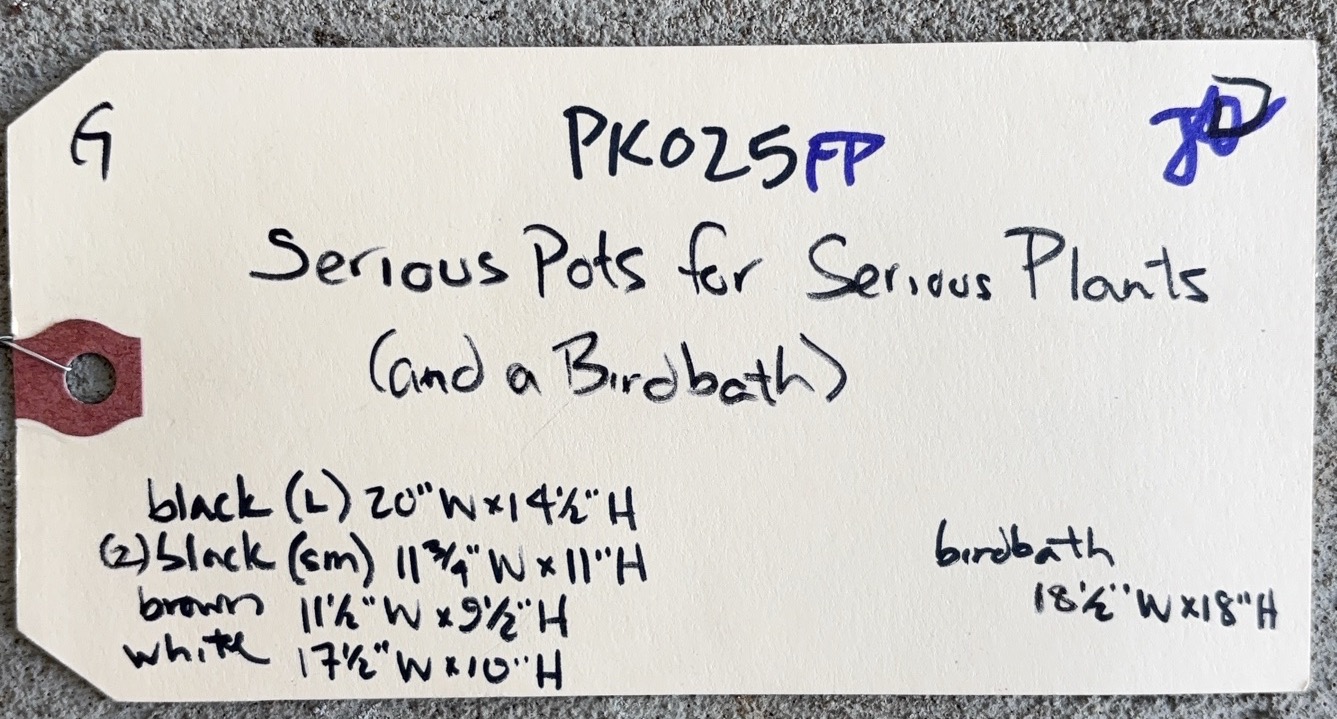 G
PK025FP
Serious Pots for Serious Plants
(and a Birdbath)
black (L) 20" W x 14½" H
(2) black (sm) 11¾" W x 11" H
brown 11½" W x 9½" H
white 17½" W x 10" H
birdbath
18½" W x 18" H